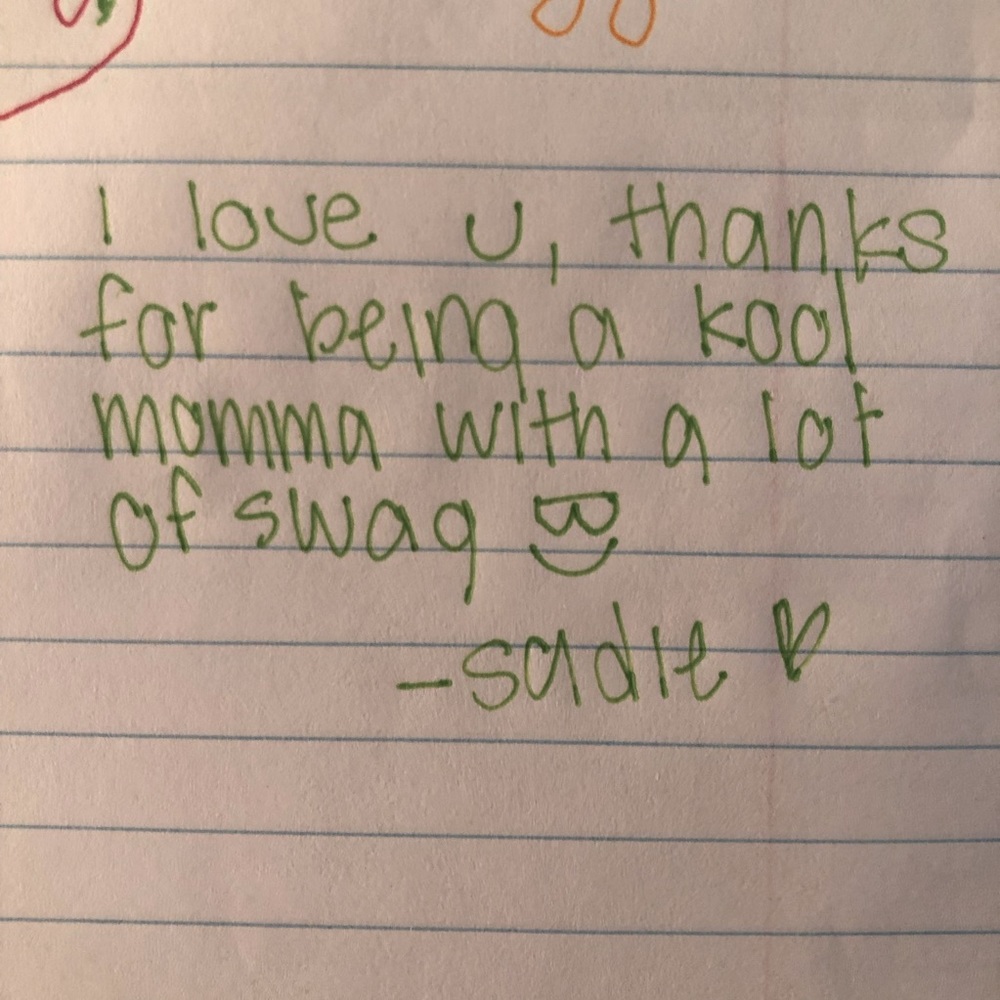 I love u, thanks
for being a kool
momma with a lot
of swag B)
-sadie ♡